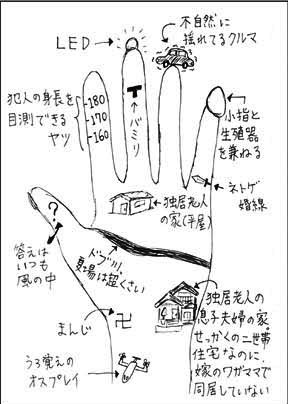 LED→
不自然に
揺れてるクルマ
犯人の身長を
目測できる
ヤツ
-180
-170
-160
↑バミリ
小指と
生殖器
を
兼ねる
ネトゲ
婚線
←独居老人
の家(平屋)
?
答えは
いつも
風の中
ドブ川
夏場は超くさい
まんじ→
卍
独居老人の
息子夫婦の家
せっかくの二世帯
住宅なのに、
嫁のワガママで
同居していない
うろ覚えの
オスプレイ